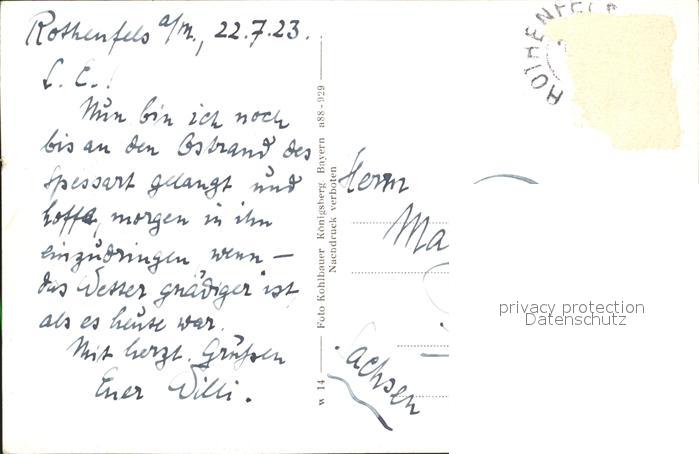 Rothenfels a/M., 22.7.23.
L. E.!
Nun bin ich noch
bis an den Ostrand des
Spessart gelangt und
hoffe, morgen in ihn
einzudringen wenn —
das Wetter gnädiger ist,
als es heute war.
Mit herzl. Grüßen
Euer Willi.
w 14 Foto Kohlbauer Königsberg Bayern a88-929
Nachdruck verboten
ROTHENFELS
Herrn
Ma
Sachsen
privacy protection
Datenschutz